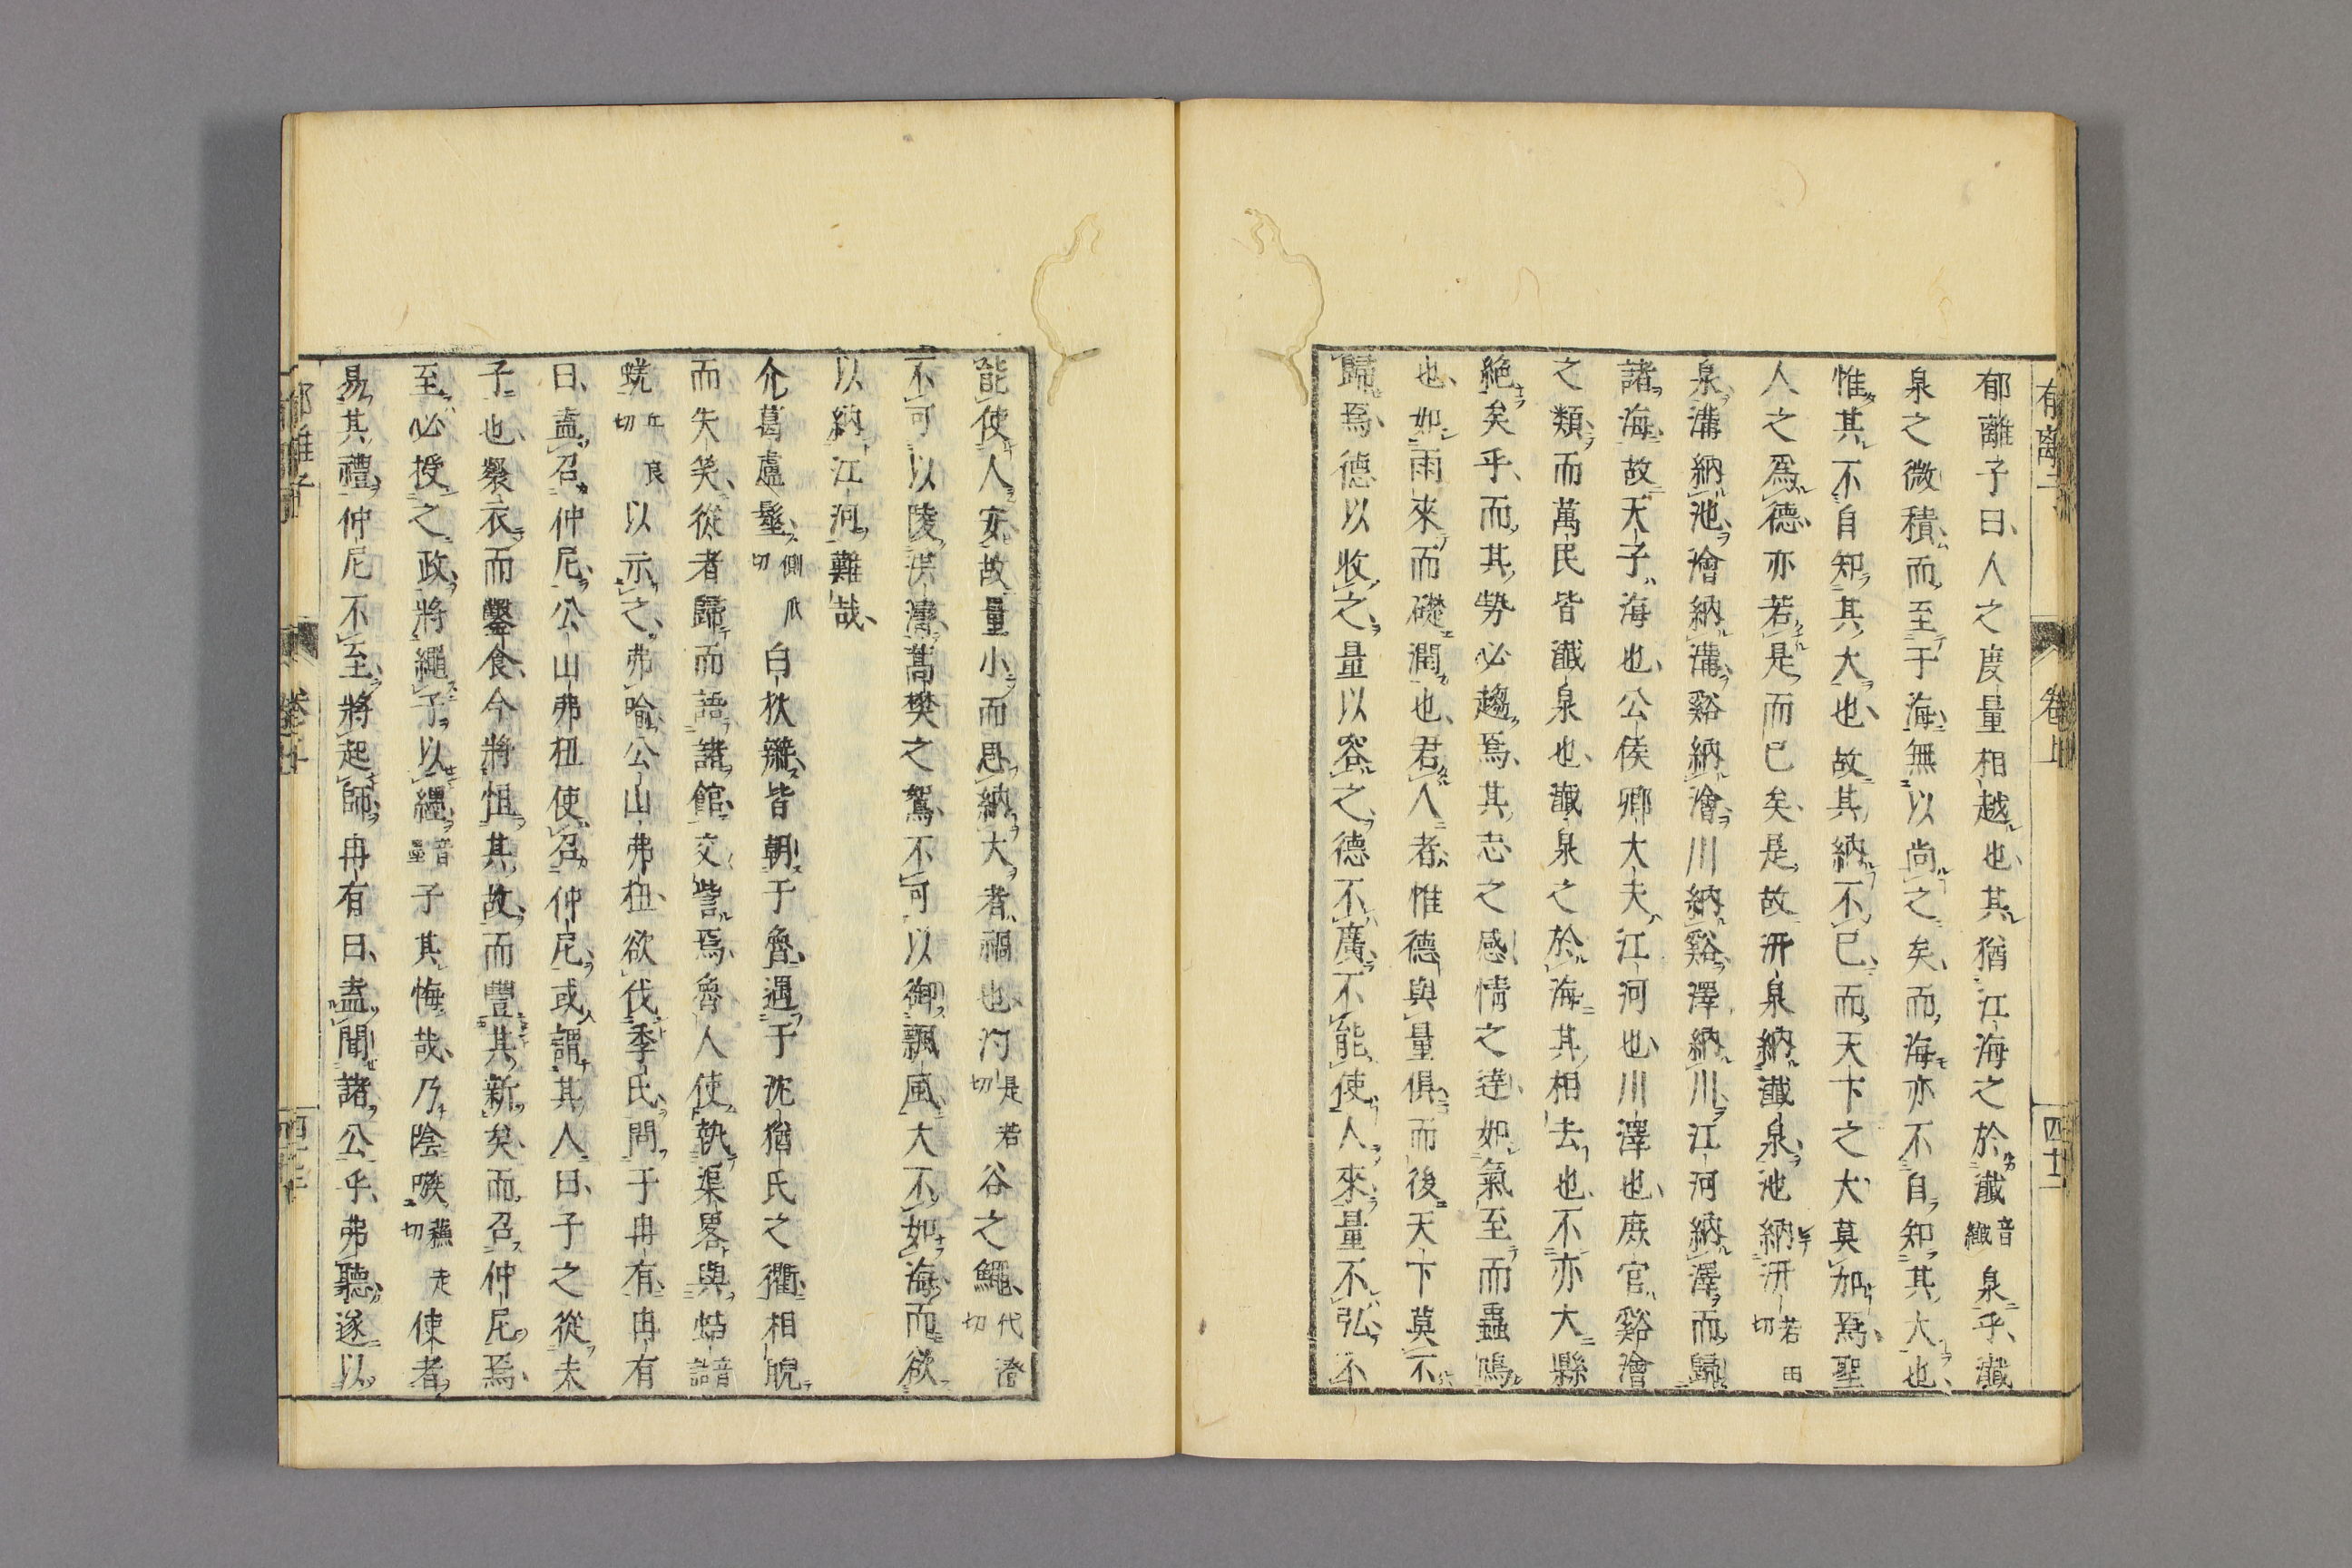 郁離子曰人之度量相越也其猶江海之於瀸音纖泉乎瀸
泉之微積而至于海無以尚之矣而海亦不自知其大也
惟其不自知其大也故其納不已而天下之大莫加焉聖
人之爲德亦若是而已矣是故汧泉納瀸泉池納汧若田切
泉溝納池澮納溝谿納澮川納谿澤納川江河納澤而歸
諸海故天子海也公侯卿大夫江河也川澤也庶官谿澮
之類而萬民皆瀸泉也瀸泉之於海其相去也不亦大縣
絶矣乎而其勢必趨焉其志之感情之達如氣至而蟲鳴
也如雨來而礎潤也君人者惟德與量俱而後天下莫不
歸焉德以收之量以容之德不廣不能使人來量不弘不
能使人安故量小而思納大者禍也汋是若切谷之鱦代澄切
不可以陵洪濤蒿樊之鴽不可以御飄風大不如海而欲
以納江河難哉
介葛盧髽側瓜切白狄辮皆朝于魯遇于沈猶氏之衢相睨
而失笑從者歸而語諸館交訾焉魯人使執渠畧與蛣音詰
蜣丘良切以示之弗喻公山弗杻欲伐季氏問于冉有冉有
曰盍召仲尼公山弗杻使召仲尼或謂其人曰子之從夫
子也褧衣而鑿食今將怚其故而豐其新矣而召仲尼焉
至必授之政將繩子以纆音墨子其悔哉乃陰嗾蘓走使者
易其禮仲尼不至將起師冉有曰盍聞諸公乎弗聽遂以
郁離子
卷上
四十二